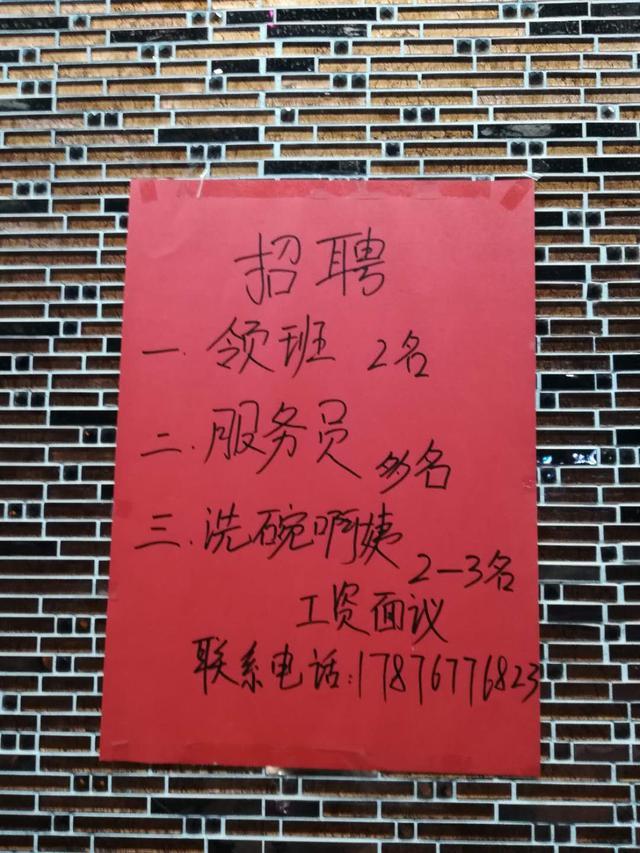 招聘
一.领班 2名
二.服务员 多名
三.洗碗啊姨 2-3名
工资面议
联系电话:17876776823